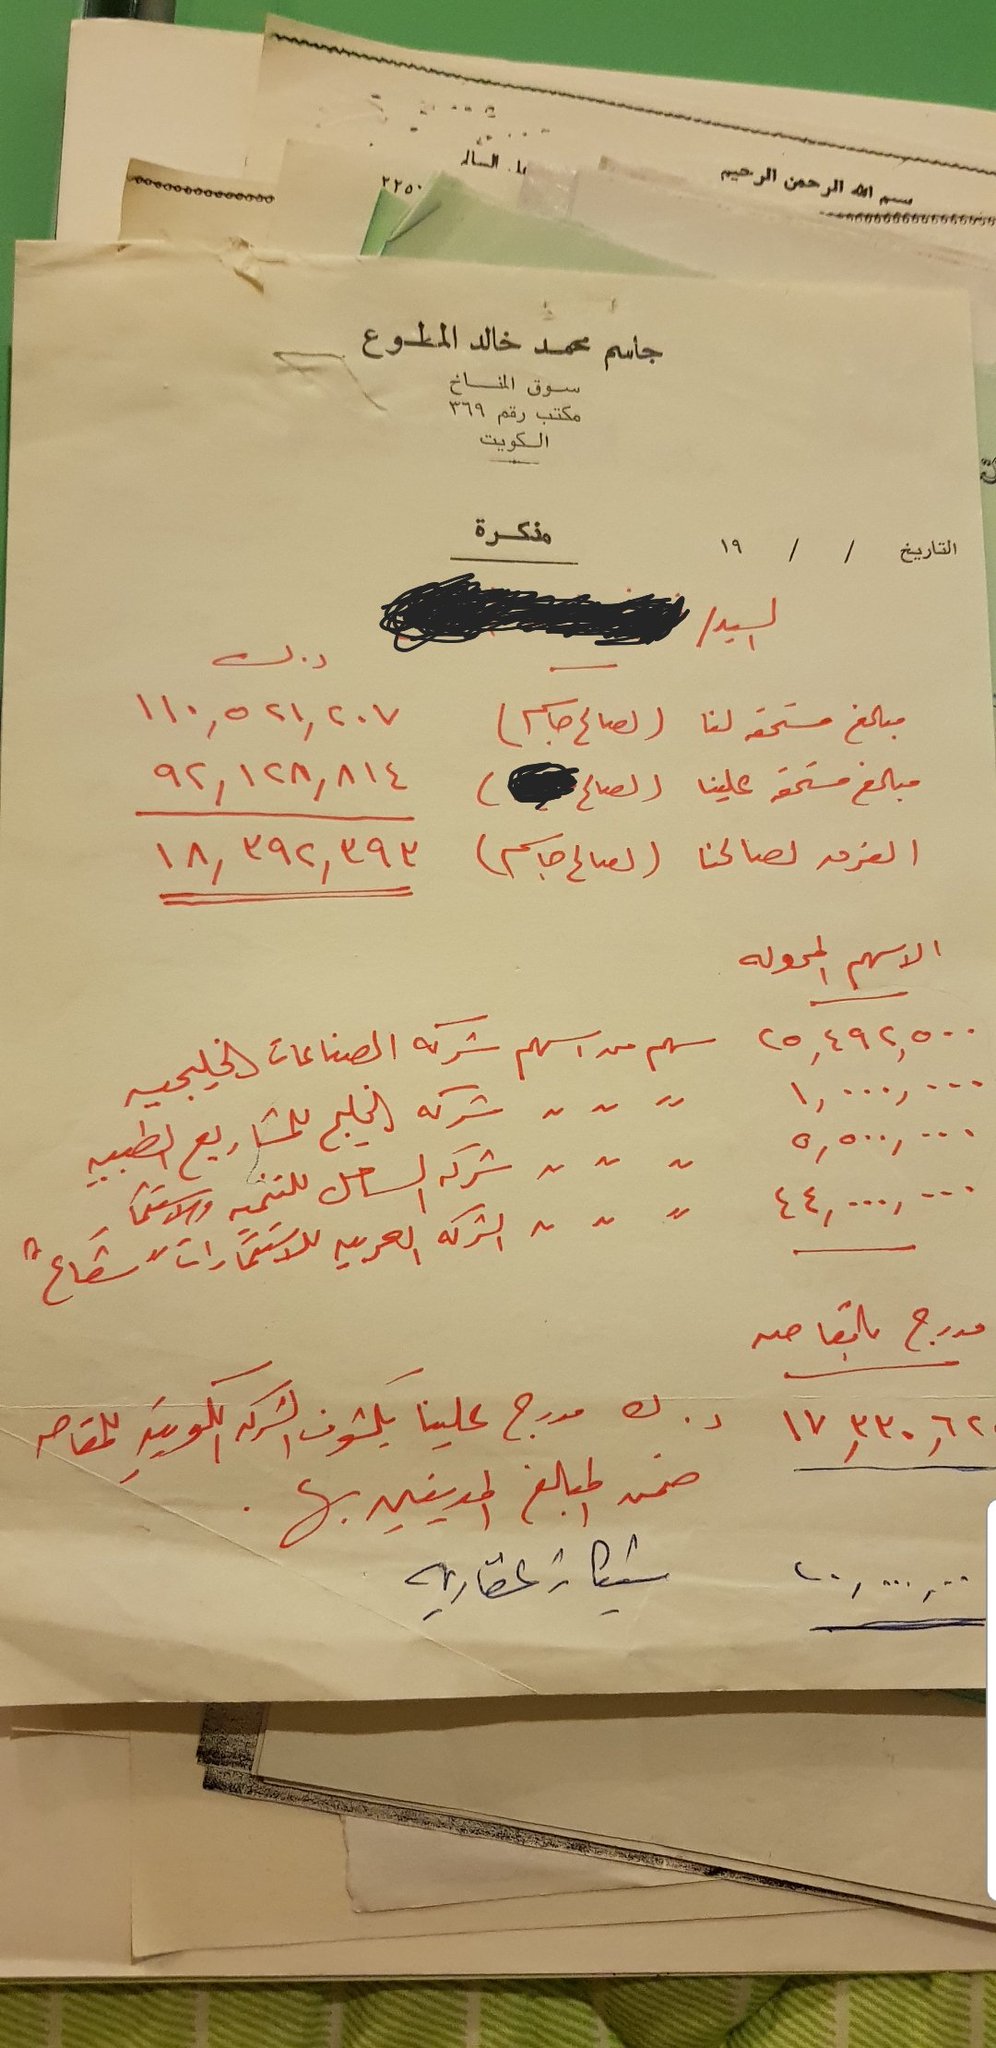 بسم الله الرحمن الرحيم
٢٢٥٠
جاسم محمد خالد المطوع
سوق المناخ
مكتب رقم ٣٦٩
الكويت
مذكرة
التاريخ / / ١٩
السيد/
د.ك
مبالغ مستحقه لنا (لصالح جاسم) ١١٠,٥٢١,٢٠٧
مبالغ مستحقه علينا (لصالح) ٩٢,١٢٨,٨١٤
الفرق لصالحنا (لصالح جاسم) ١٨,٣٩٢,٣٩٣
الاسهم المحوله
٢٥,٤٩٢,٥٠٠ سهم من اسهم شركه الصناعات الخليجيه
١,٠٠٠,٠٠٠ " " " شركه الخليج للمشاريع الطبيه
٥,٥٠٠,٠٠٠ " " " شركه الساحل للتنميه والاستثمار
٤٤,٠٠٠,٠٠٠ " " " الشركه العربيه للاستثمارات "شعاع"
مدرج بالمقاصه
١٧,٣٣٠,٦٢٠ د.ك مدرج علينا بكشوف الشركه الكويتيه للمقاصه
ضمن المبالغ المدينين بها.
٢٠,٠٠٠,٠٠٠ شيكات عقاريه